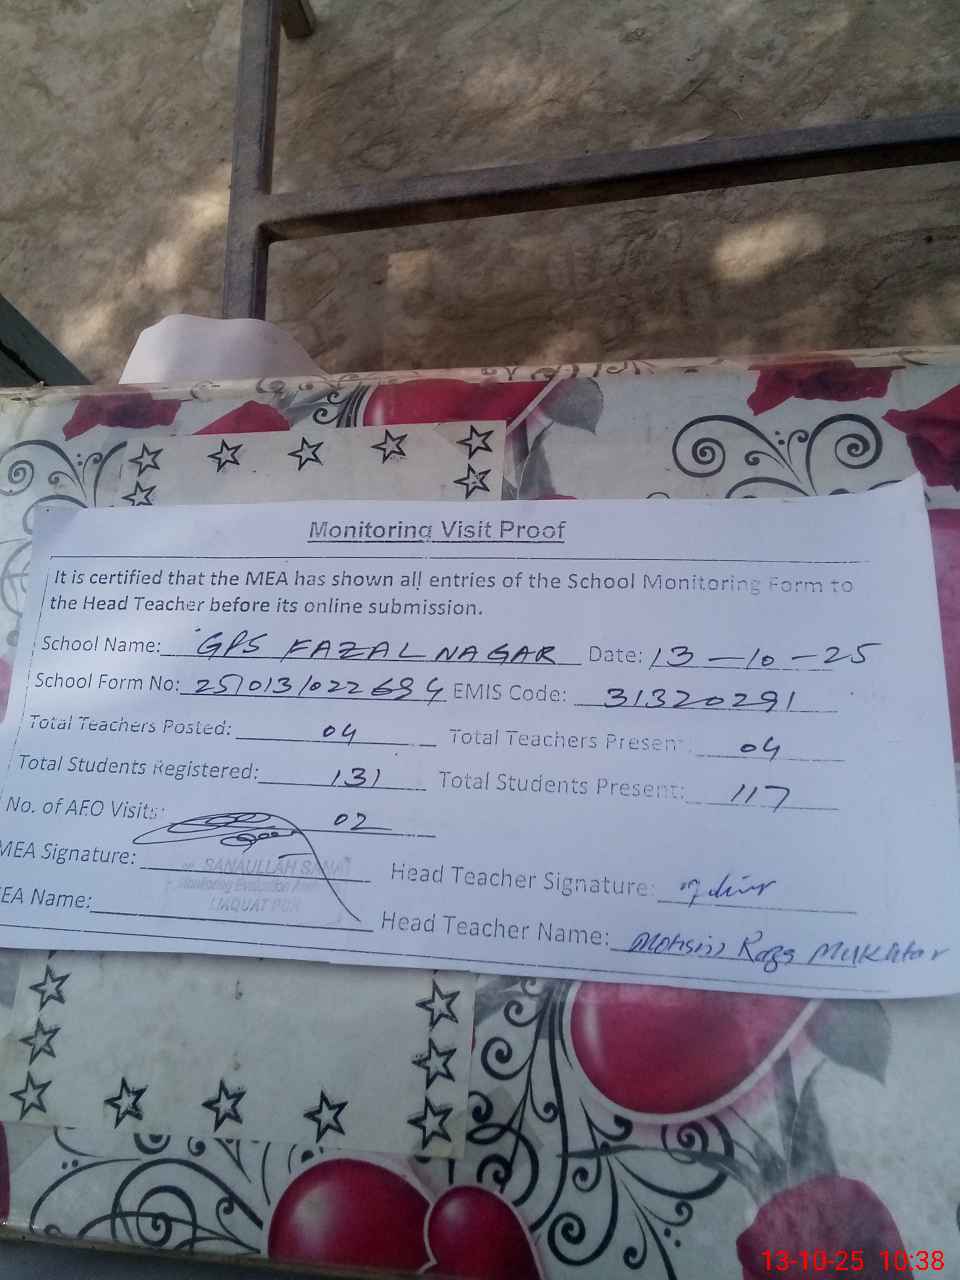 Monitoring Visit Proof
It is certified that the MEA has shown all entries of the School Monitoring Form to
the Head Teacher before its online submission.
School Name: GPS FAZAL NAGAR Date: 13-10-25
School Form No: 2510131022684 EMIS Code: 31320291
Total Teachers Posted: 04 Total Teachers Present: 04
Total Students Registered: 131 Total Students Present: 117
No. of AEO Visits: 02
MEA Signature: Head Teacher Signature:
SANAULLAH SANA
Monitoring Evaluation
LIAQUAT PUR
EA Name: Head Teacher Name: Mohsin Raza Mukhtar
13-10-25 10:38